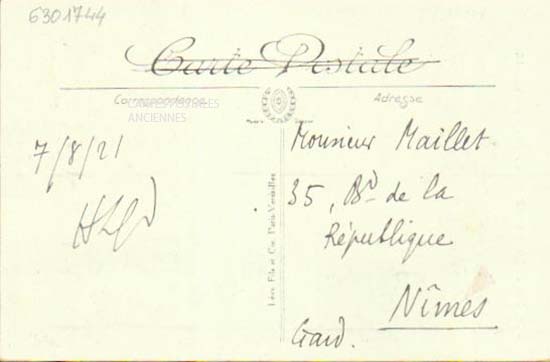 6301744
Carte Postale
Correspondance
Adresse
CARTES POSTALES
ANCIENNES
7/8/21
Monsieur Maillet
35, Bd de la
République
Nîmes
Gard.
Lévy Fils et Cie, Paris-Versailles